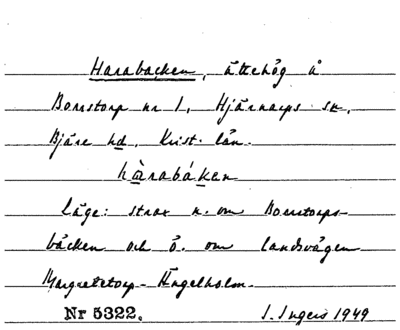 Harabacken, ättehög å
Borrstorp nr 1, Hjärnarps sn.
Bjäre hd. Krist. län.
hàrabáken
läge: strax n. om Borrstorps-
bäcken och ö. om landsvägen
Margretetorp - Ängelholm.
Nr 5322. I. Ingers 1949